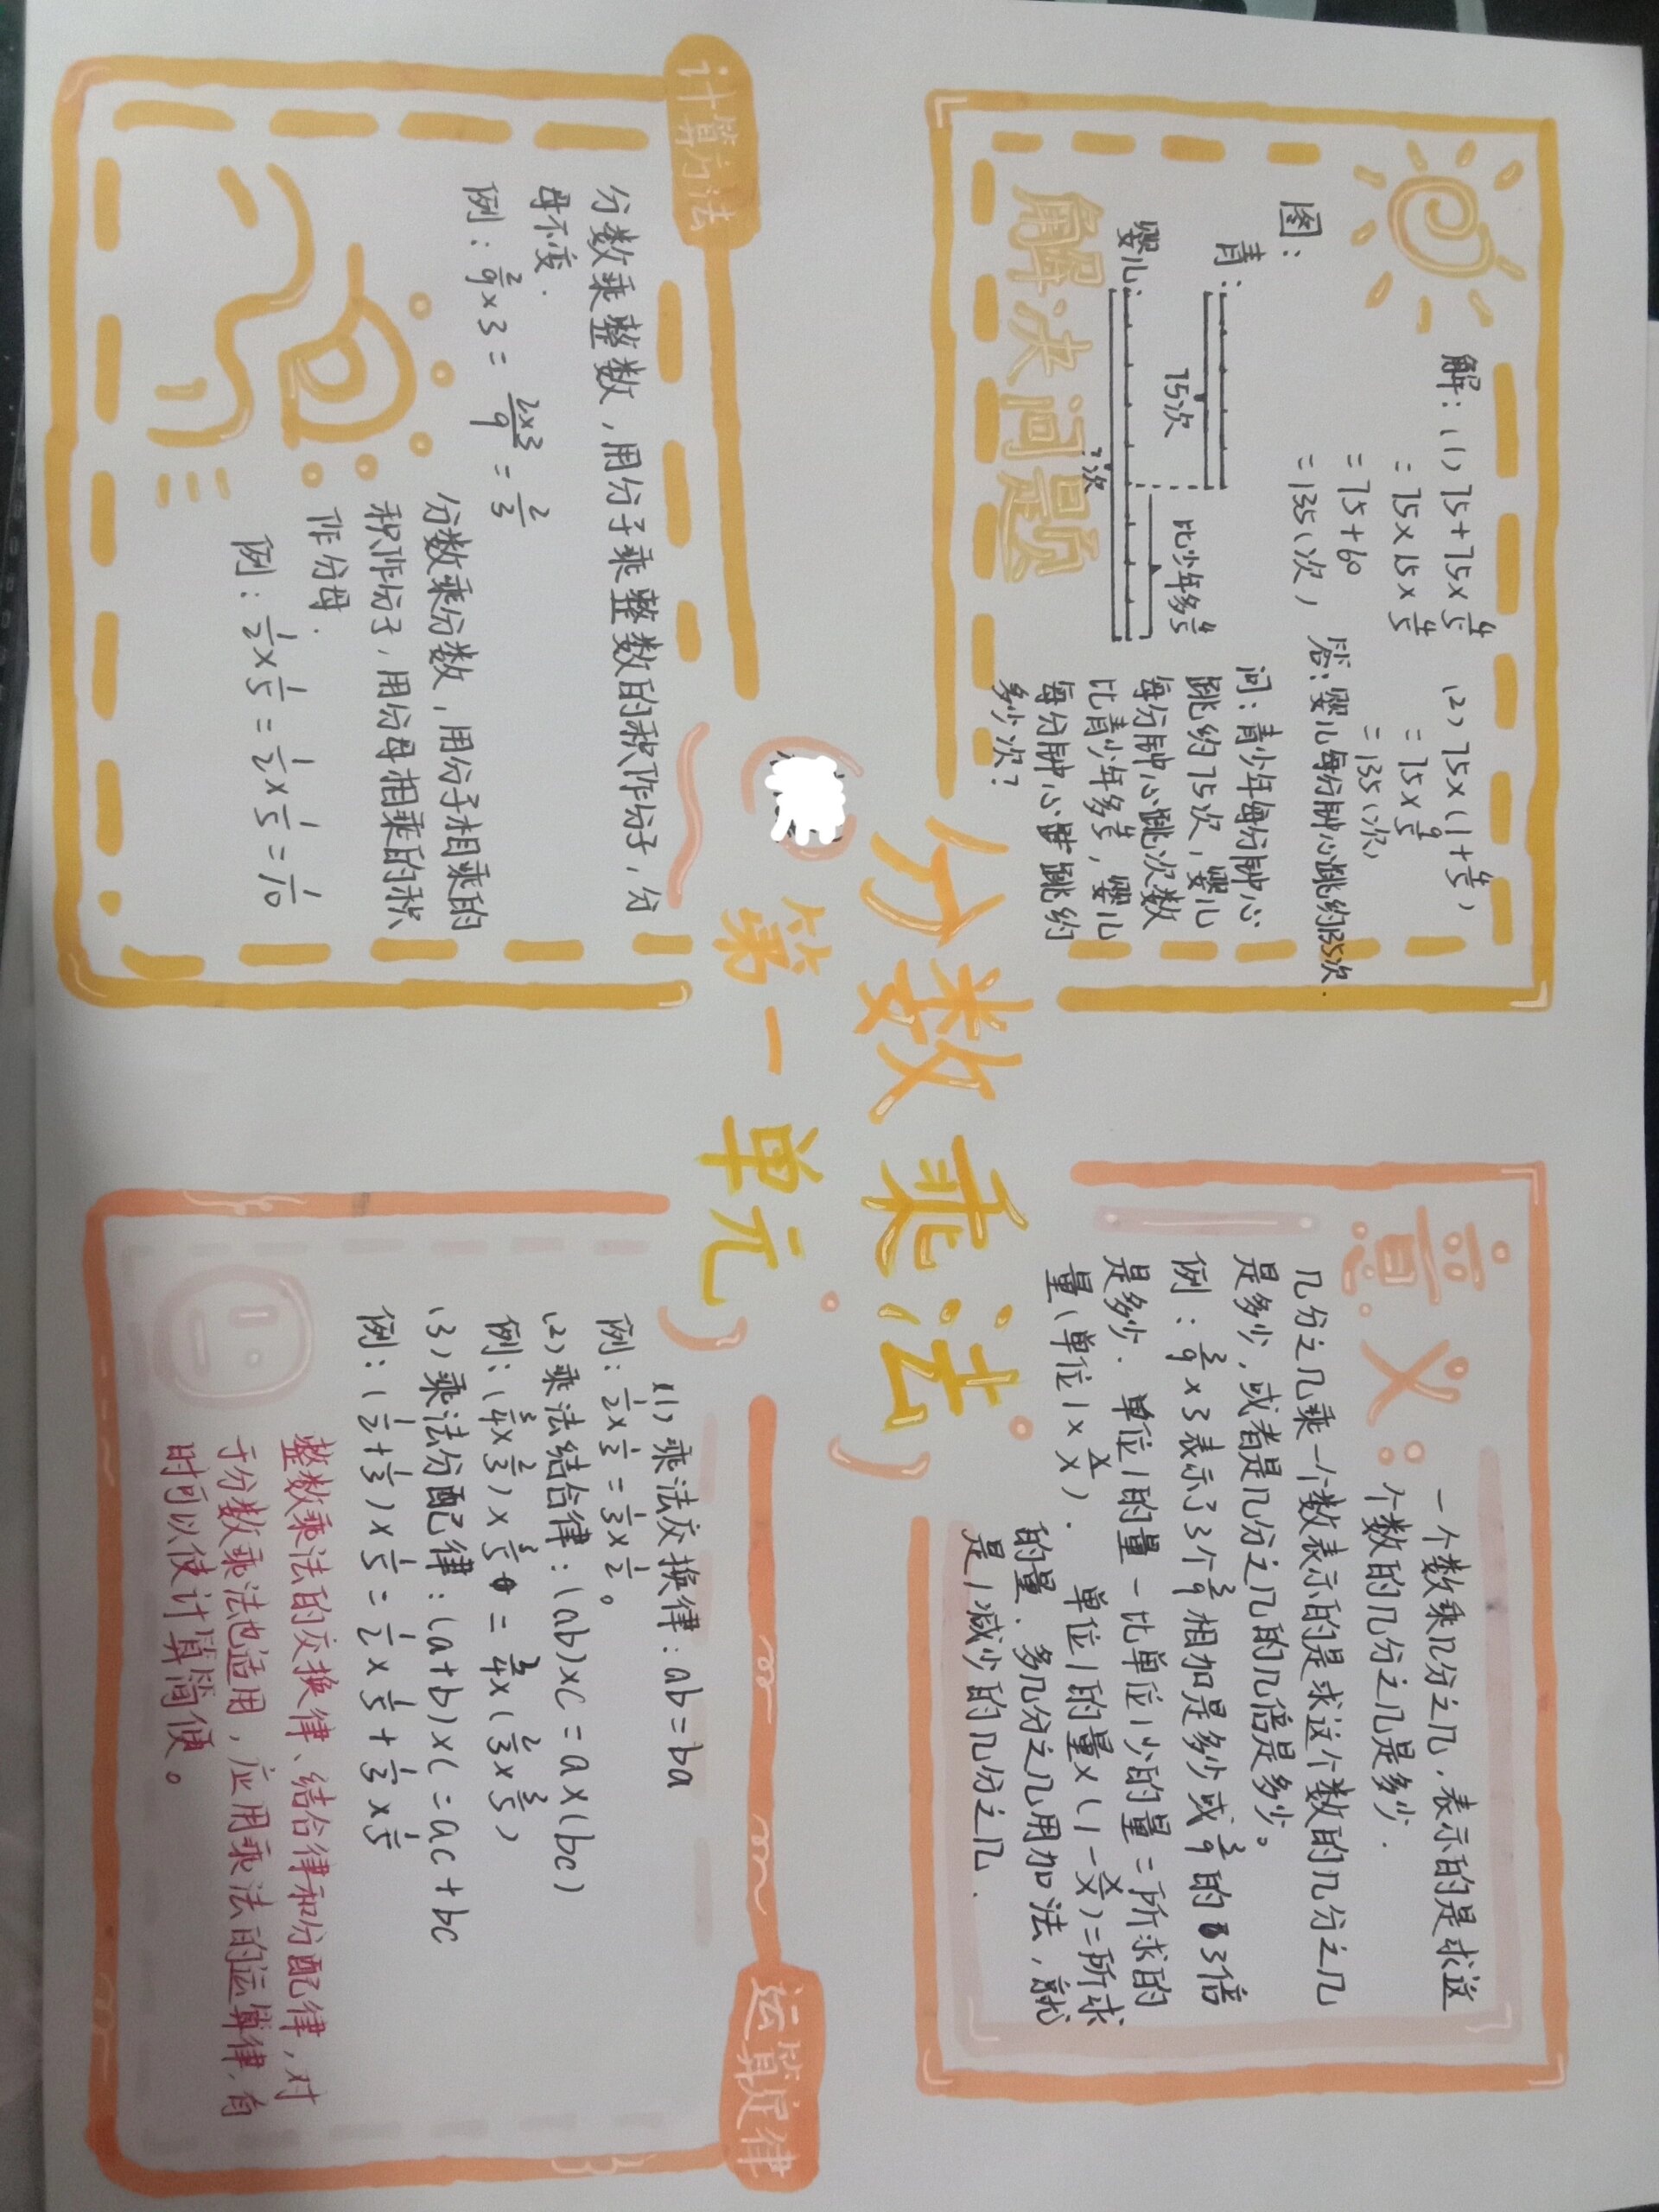 分数乘法
第一单元)
解决问题
解:(1) 75+75×4/5
=75×15×4/5
=75+60
=135(次)
(2) 75×(1+4/5)
=75×9/5
=135(次)
答:婴儿每分钟心跳约135次.
图:
青:
75次
比少年多4/5
婴儿:
?次
问:青少年每分钟心
跳约75次,婴儿
每分钟心跳次数
比青少年多4/5,婴儿
每分钟心跳约
多少次?
意义:
一个数乘几分之几,表示的是求这
个数的几分之几是多少.
几分之几乘一个数表示的是求这个数的几分之几
是多少,或者是几分之几的几倍是多少。
例:2/9×3表示了3个2/9相加是多少或2/9的3倍
是多少.单位1的量-比单位1少的量=所求的
量(单位1×x/x).单位1的量×(1-x/x)=所求
的量.多几分之几用加法,就
是1减少的几分之几.
计算方法
分数乘整数,用分子乘整数的积作分子,分
母不变.
例:2/9×3=2×3/9=2/3
分数乘分数,用分子相乘的
积作分子,用分母相乘的积
作分母.
例:1/2×1/5=1/2×1/5=1/10
运算定律
(1)乘法交换律:ab=ba
例:1/2×1/3=1/3×1/2。
(2)乘法结合律:(ab)×c=a×(bc)
例:(3/4×2/3)×3/5=3/4×(2/3×3/5)
(3)乘法分配律:(a+b)×c=ac+bc
例:(1/2+1/3)×1/5=1/2×1/5+1/3×1/5
整数乘法的交换律、结合律和分配律,对
于分数乘法也适用,应用乘法的运算律,有
时可以使计算简便。